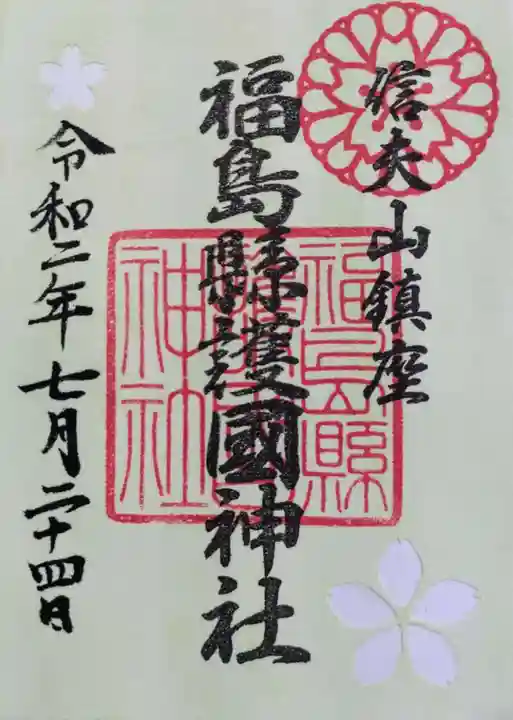 信夫山鎮座
福島縣護國神社
令和二年七月二十四日
福島縣
護國
神社